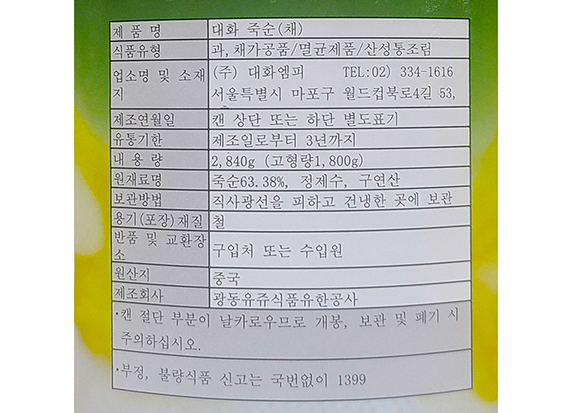 제 품 명 대화 죽순(채)
식품유형 과,채가공품/멸균제품/산성통조림
업소명 및 소재지 (주) 대화엠피 TEL:02) 334-1616
서울특별시 마포구 월드컵북로4길 53,
제조연월일 캔 상단 또는 하단 별도표기
유통기한 제조일로부터 3년까지
내 용 량 2,840g (고형량1,800g)
원재료명 죽순63.38%, 정제수, 구연산
보관방법 직사광선을 피하고 건냉한 곳에 보관
용기(포장)재질 철
반품 및 교환장소 구입처 또는 수입원
원산지 중국
제조회사 광동유쥬식품유한공사
·캔 절단 부분이 날카로우므로 개봉, 보관 및 폐기 시
주의하십시오.
·부정, 불량식품 신고는 국번없이 1399